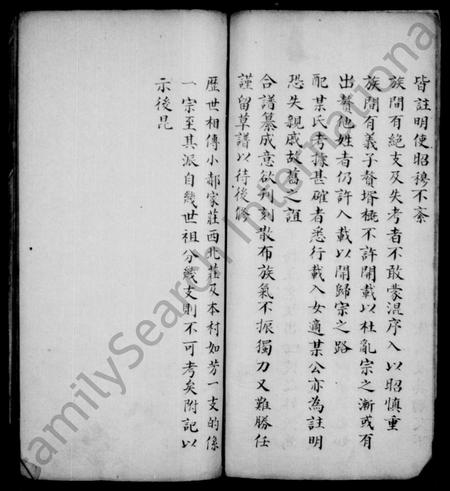 皆註明使昭穆不紊
族間有絕支及失考者不敢蒙混序入以昭慎重
族間有義子贅壻概不許開載以杜亂宗之漸或有
出贅他姓者仍許入載以開歸宗之路
配某氏考據甚確者悉行載入女適某公亦為註明
恐失親戚故舊之誼
合譜纂成意欲刊刻散布族氣不振獨力又難勝任
謹留草譜以待後修
歷世相傳小郝家莊西北莊及本村如芳一支的係
一宗至其派自幾世祖分幾支則不可考矣附記以
示後昆
FamilySearch International